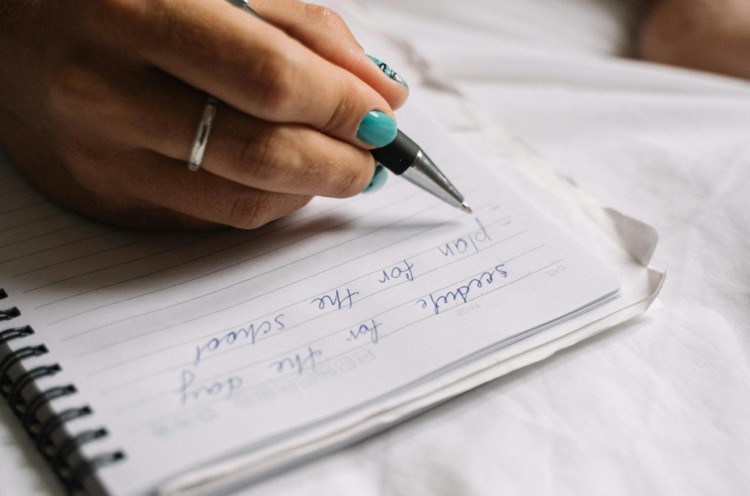 seedule for the day
- plan for the school